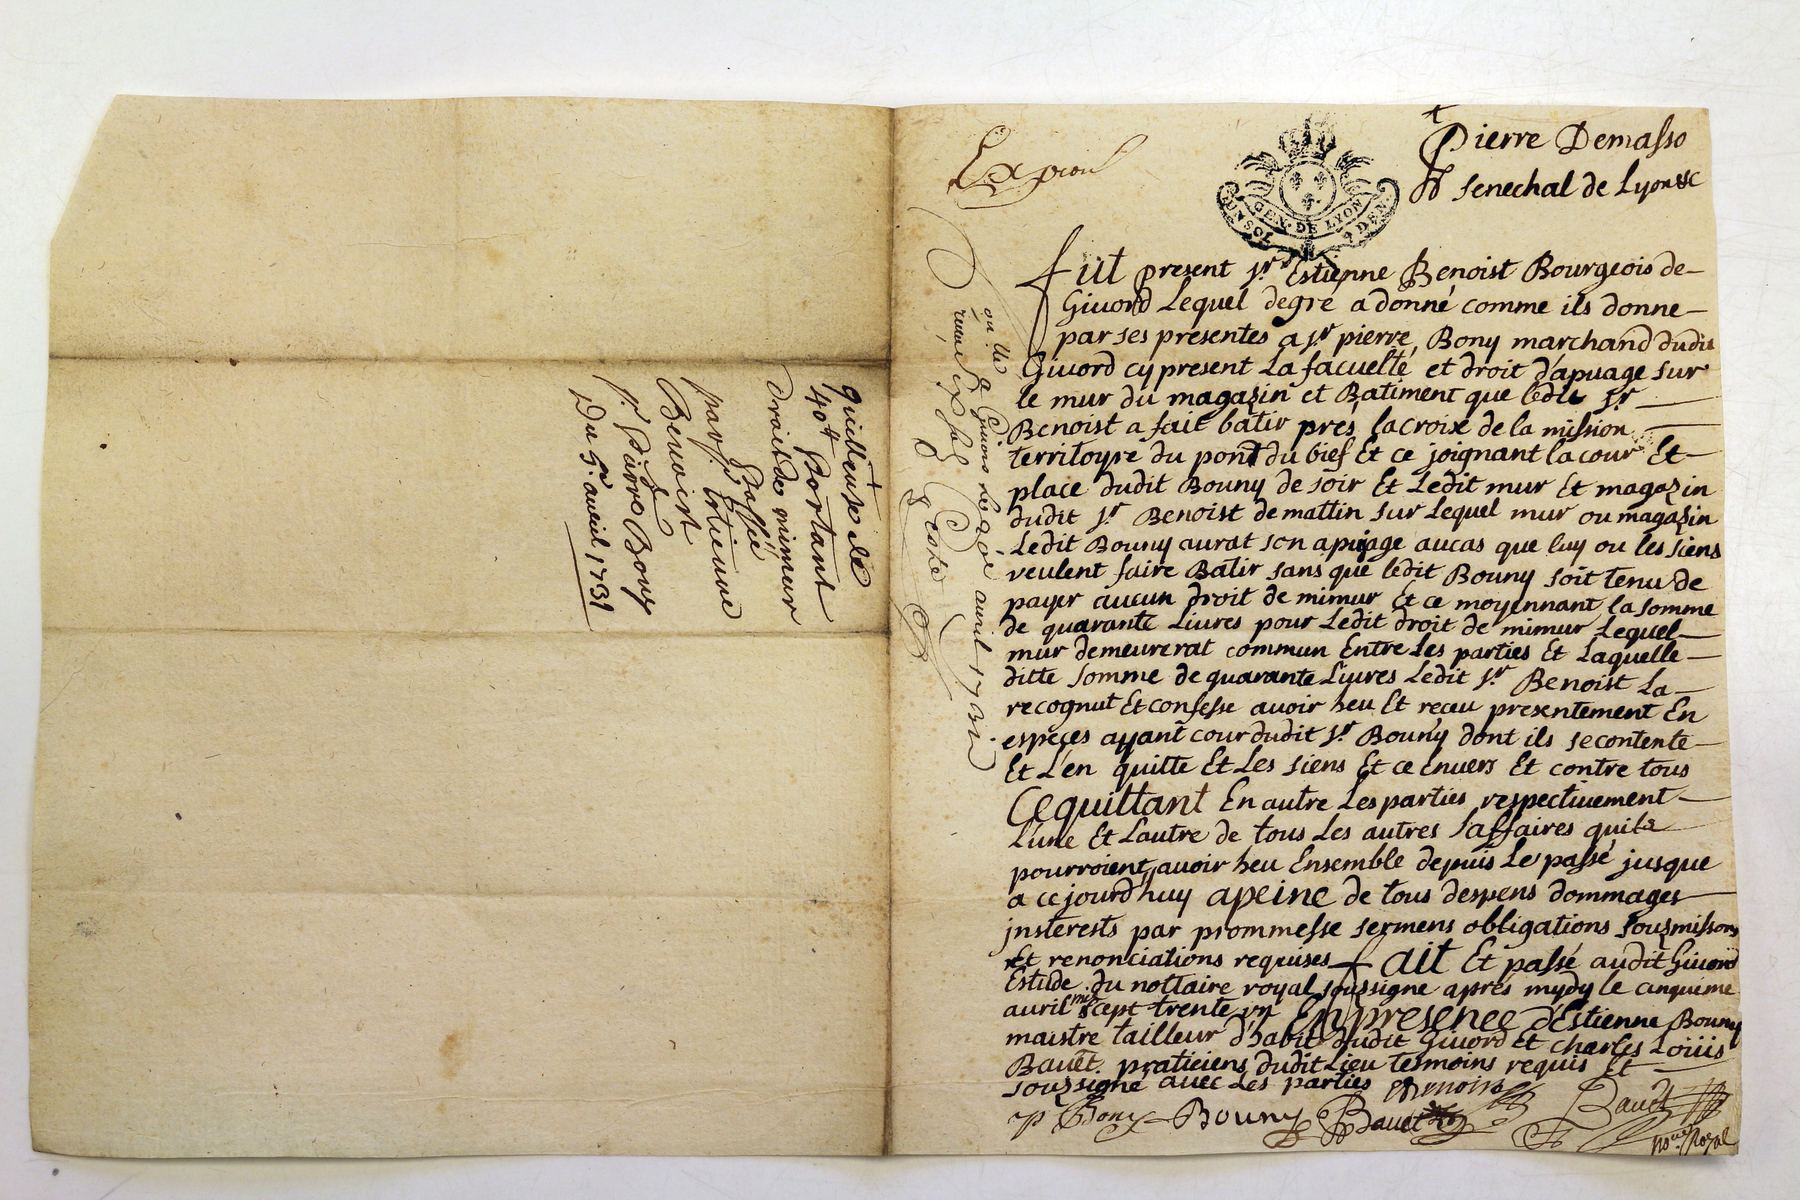 Expedion
GEN. DE LYON
UN SOL
2 DEN.
Pierre Demasso
senechal de Lyon &c
fut present sr Estienne Benoist Bourgeois de
Giuord Lequel degré a donné comme ils donne
par ses presentes a sr pierre Bony marchand dudit
Giuord cy present La facuelté et droit d'apuage sur
le mur du magazin et Batiment que ledit sr
Benoist a fait bâtir prés la croix de la mission
territoyre du pont du bief Et ce joignant la cour Et
place dudit Bouny de soir Et Ledit mur Et magazin
dudit sr Benoist de mattin sur Lequel mur ou magazin
Ledit Bouny aurat son apuyage aucas que luy ou les siens
veulent faire Batir sans que ledit Bouny soit tenu de
payer aucun droit de mimur Et ce moyennant la somme
de quarante Liures pour Ledit droit de mimur Lequel
mur demeurerat commun Entre Les parties Et Laquelle
ditte somme de quarante Liures Ledit sr Benoist La
recognut Et confesse auoir heu Et receu presentement En
espèces ayant cour dudit sr Bouny dont ils se contente
Et L'en quitte Et Les siens Et ce Enuers Et contre tous
Ce quittant En autre Les parties respectiuement
L'une Et L'autre de tous Les autres affaires quils
pourroient auoir heu Ensemble depuis Le passé jusque
a ce jourd'huy a peine de tous despens dommages
jnsterests par prommesse sermens obligations souzmissons
Et renonciations requises fait Et passé audit Giuord
Estude du nottaire royal soussigne aprés mydy le cinquieme
auril mil sept trente un En presence d'Estienne Bouny
maistre tailleur d'habit dudit Giuord Et Charles Loüis
Bauet praticiens dudit Lieu tesmoins requis Et
souzsigné auec Les parties EBenoist
P Bony Bouny Bauet Bauet
nore Royal
Giuors le auril 1731
quittense de
40 ℔ Portant
droit de mimeur
Passée
par sr Etienne
Benoist
A
sr Pierre Bony
Du 5e aueil 1731